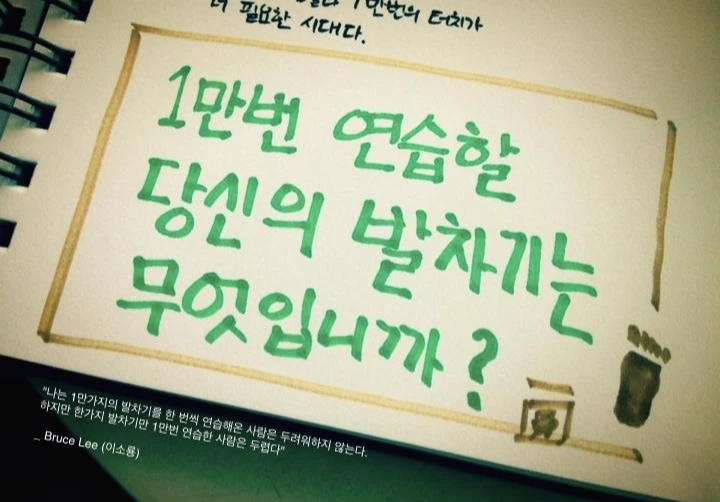 1만번의 터치가
더 필요한 시대다.
1만번 연습할
당신의 발차기는
무엇입니까?
"나는 1만가지의 발차기를 한 번씩 연습해온 사람은 두려워하지 않는다.
하지만 한가지 발차기만 1만번 연습한 사람은 두렵다"
_ Bruce Lee (이소룡)